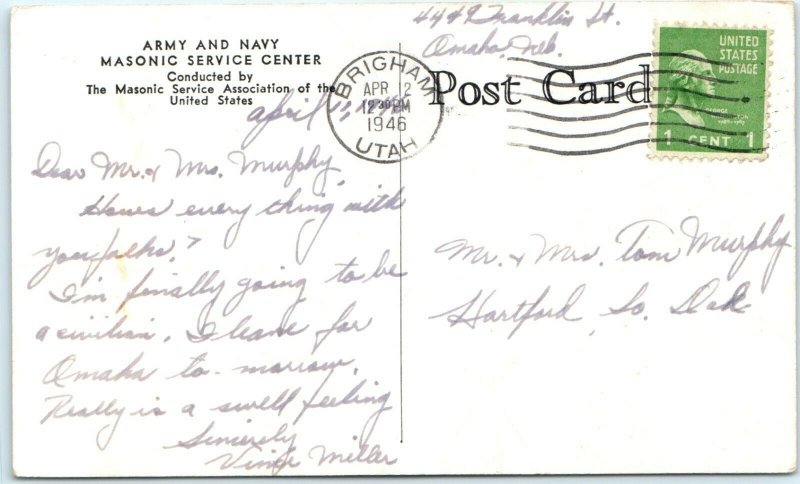 ARMY AND NAVY
MASONIC SERVICE CENTER
Conducted by
The Masonic Service Association of the
United States
April
Dear Mr. & Mrs. Murphy,
Hows every thing with
you folks?
I'm finally going to be
a civilian. I leave for
Omaha to-morrow.
Really is a swell feeling
Sincerely
Vince Miller
4449 Franklin St.
Omaha, Neb.
Post Card
BRIGHAM
APR 12
12 30 PM
1946
UTAH
UNITED
STATES
POSTAGE
GEORGE
WASHINGTON
1 CENT 1
Mr. & Mrs. Tom Murphy
Hartford, So. Dak